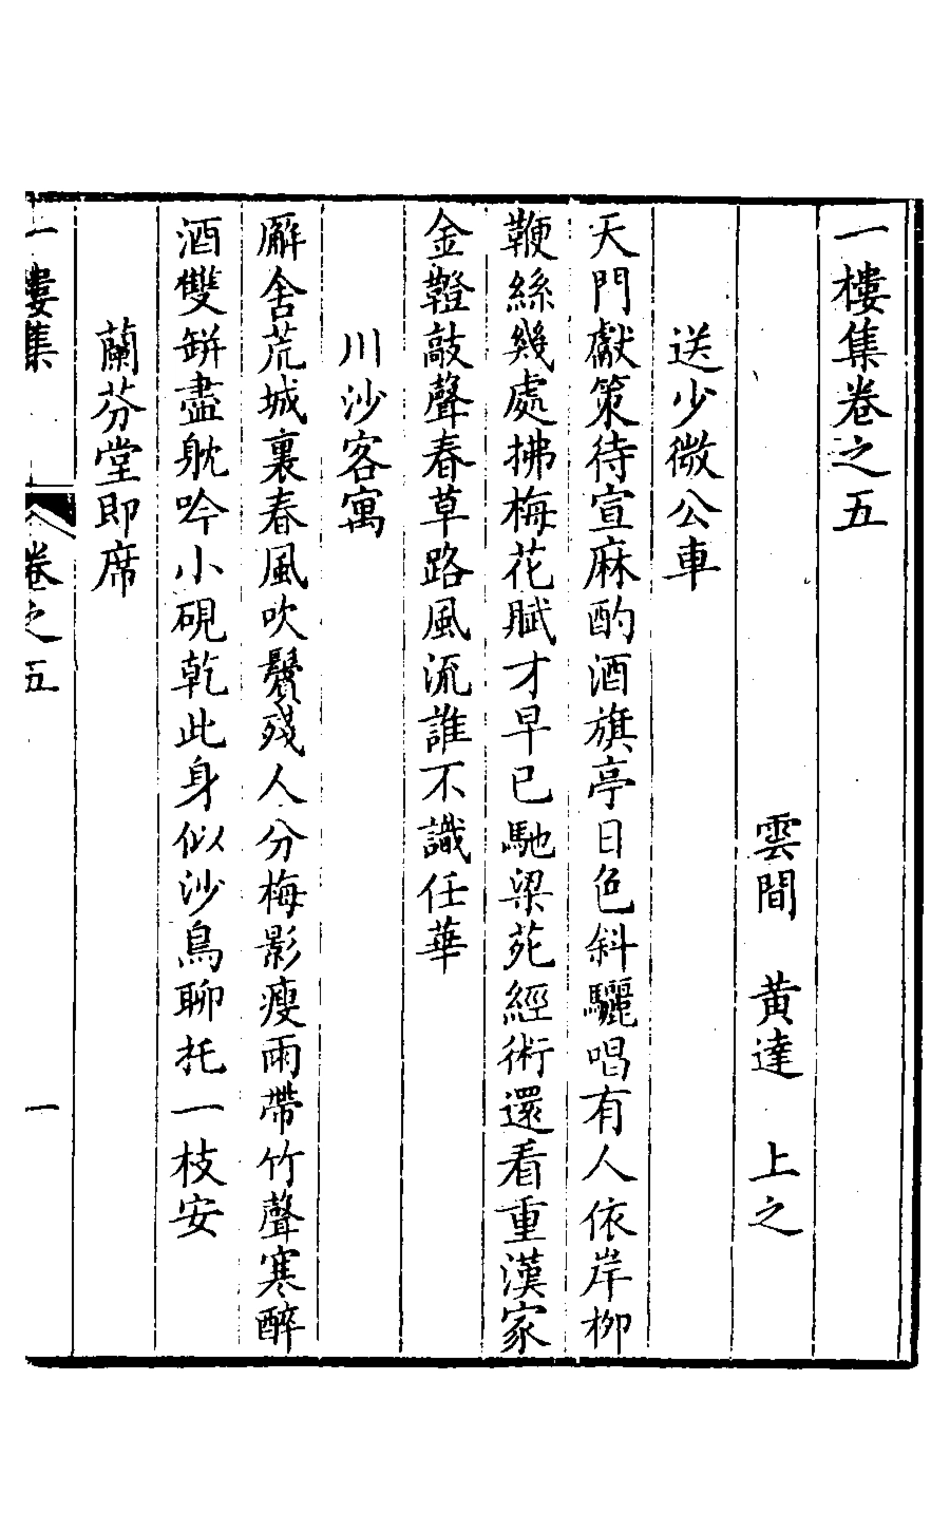 一樓集卷之五
雲間　黄達　上之
送少微公車
天門獻策待宣麻酌酒旗亭日色斜驪唱有人依岸柳
鞭絲幾處拂梅花賦才早已馳梁苑經術還看重漢家
金鐙敲聲春草路風流誰不識任華
川沙客寓
廨舍荒城裏春風吹鬢殘人分梅影瘦雨帶竹聲寒醉
酒雙缾盡躭吟小硯乾此身似沙鳥聊托一枝安
蘭芬堂即席
一樓集　卷之五　一